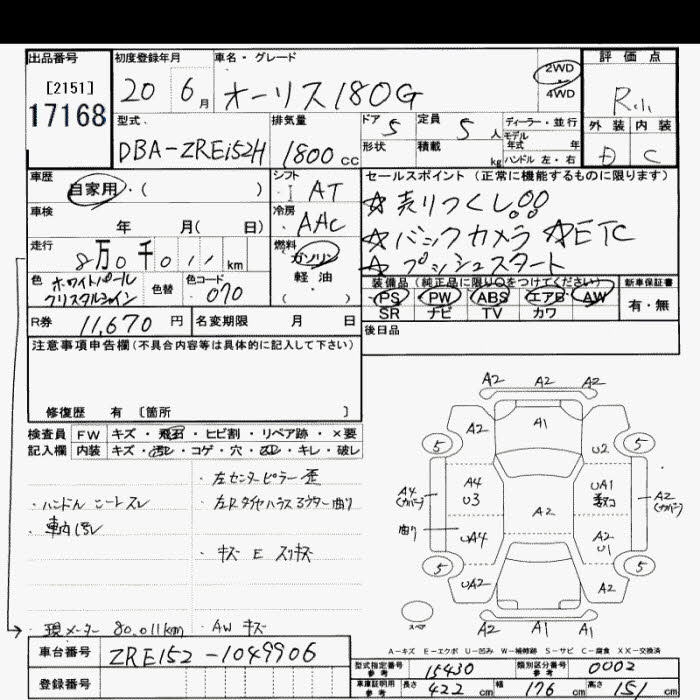 出品番号
[2151]
17168
初度登録年月
20 6月
車名・グレード
オーリス180G
2WD
4WD
評価点
R
外装 内装
D C
型式
DBA-ZRE152H
排気量
1800cc
ドア 5
定員 5人
形状
積載 kg
ディーラー・並行
モデル
年式 年
ハンドル 左・右
車歴
自家用・( )
シフト
I AT
車検
年 月( 日)
冷房
AAC
走行
8万0千011km
燃料
ガソリン
軽・油
( )
色
ホワイトパール
クリスタルシャイン
色替
色コード
070
R券 11,670円
名変期限 月 日
セールスポイント(正常に機能するものに限ります)
☆売りつくし!!!
☆バックカメラ ☆ETC
☆プッシュスタート
装備品(純正品に限り○をつけてください)
PS PW ABS エアB AW
SR ナビ TV カワ
新車保証書
有・無
後日品
注意事項申告欄(不具合内容等は具体的に記入して下さい)
修復歴 有 [箇所 ]
検査員 FW キズ・飛石・ヒビ割・リペア跡・×要
記入欄 内装 キズ・汚レ・コゲ・穴・・キレ・破レ
・左センターピラー歪
・ハンドル シートスレ
・車内汚レ
・キズ E スリキズ
・現メーター 80,011km
・AW キズ
車台番号 ZRE152-1049906
登録番号
A2 A2 A2
A2 A1
5 5
U2
A4
(カバー)
A4
U3
UA1
A2
(カバー)
A2
曲り
UA4
A2
U1
5 5
UA2
A2
スペア
A2 A1 A1
A-キズ E-エクボ U-凹み W-補修跡 S-サビ C-腐食 XX-交換済
型式指定番号
参考
15430
類別区分番号
参考
0002
車庫証明用
参考
長さ 422cm
幅 176cm
高さ 151cm